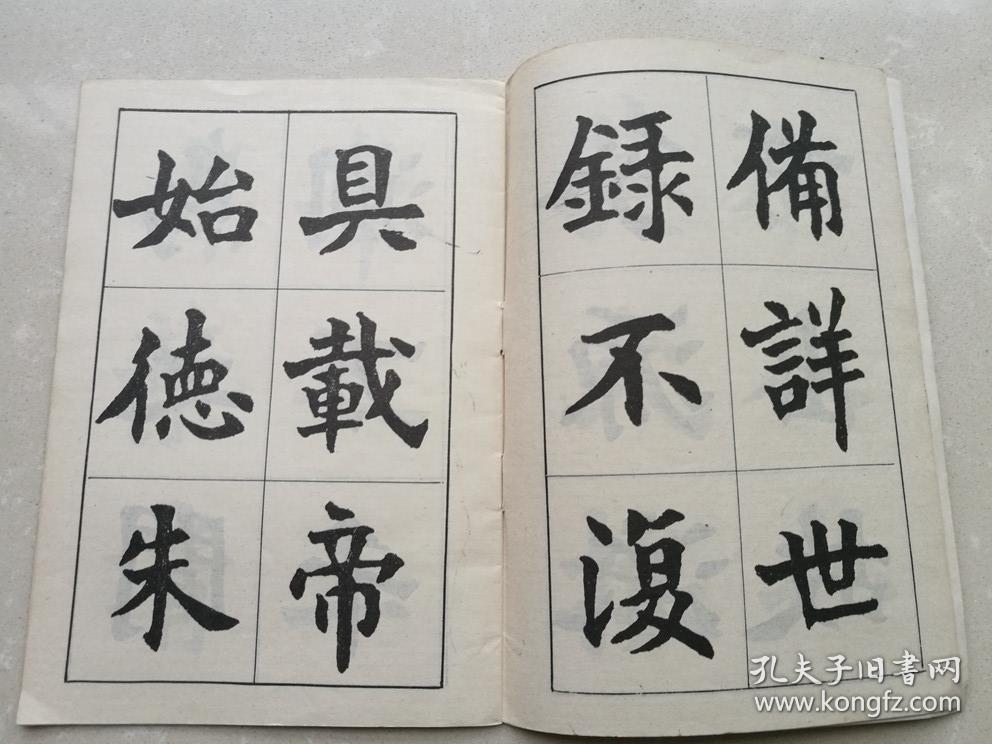 備詳世
録不復
具載帝
始德朱
孔夫子旧书网
www.kongfz.com